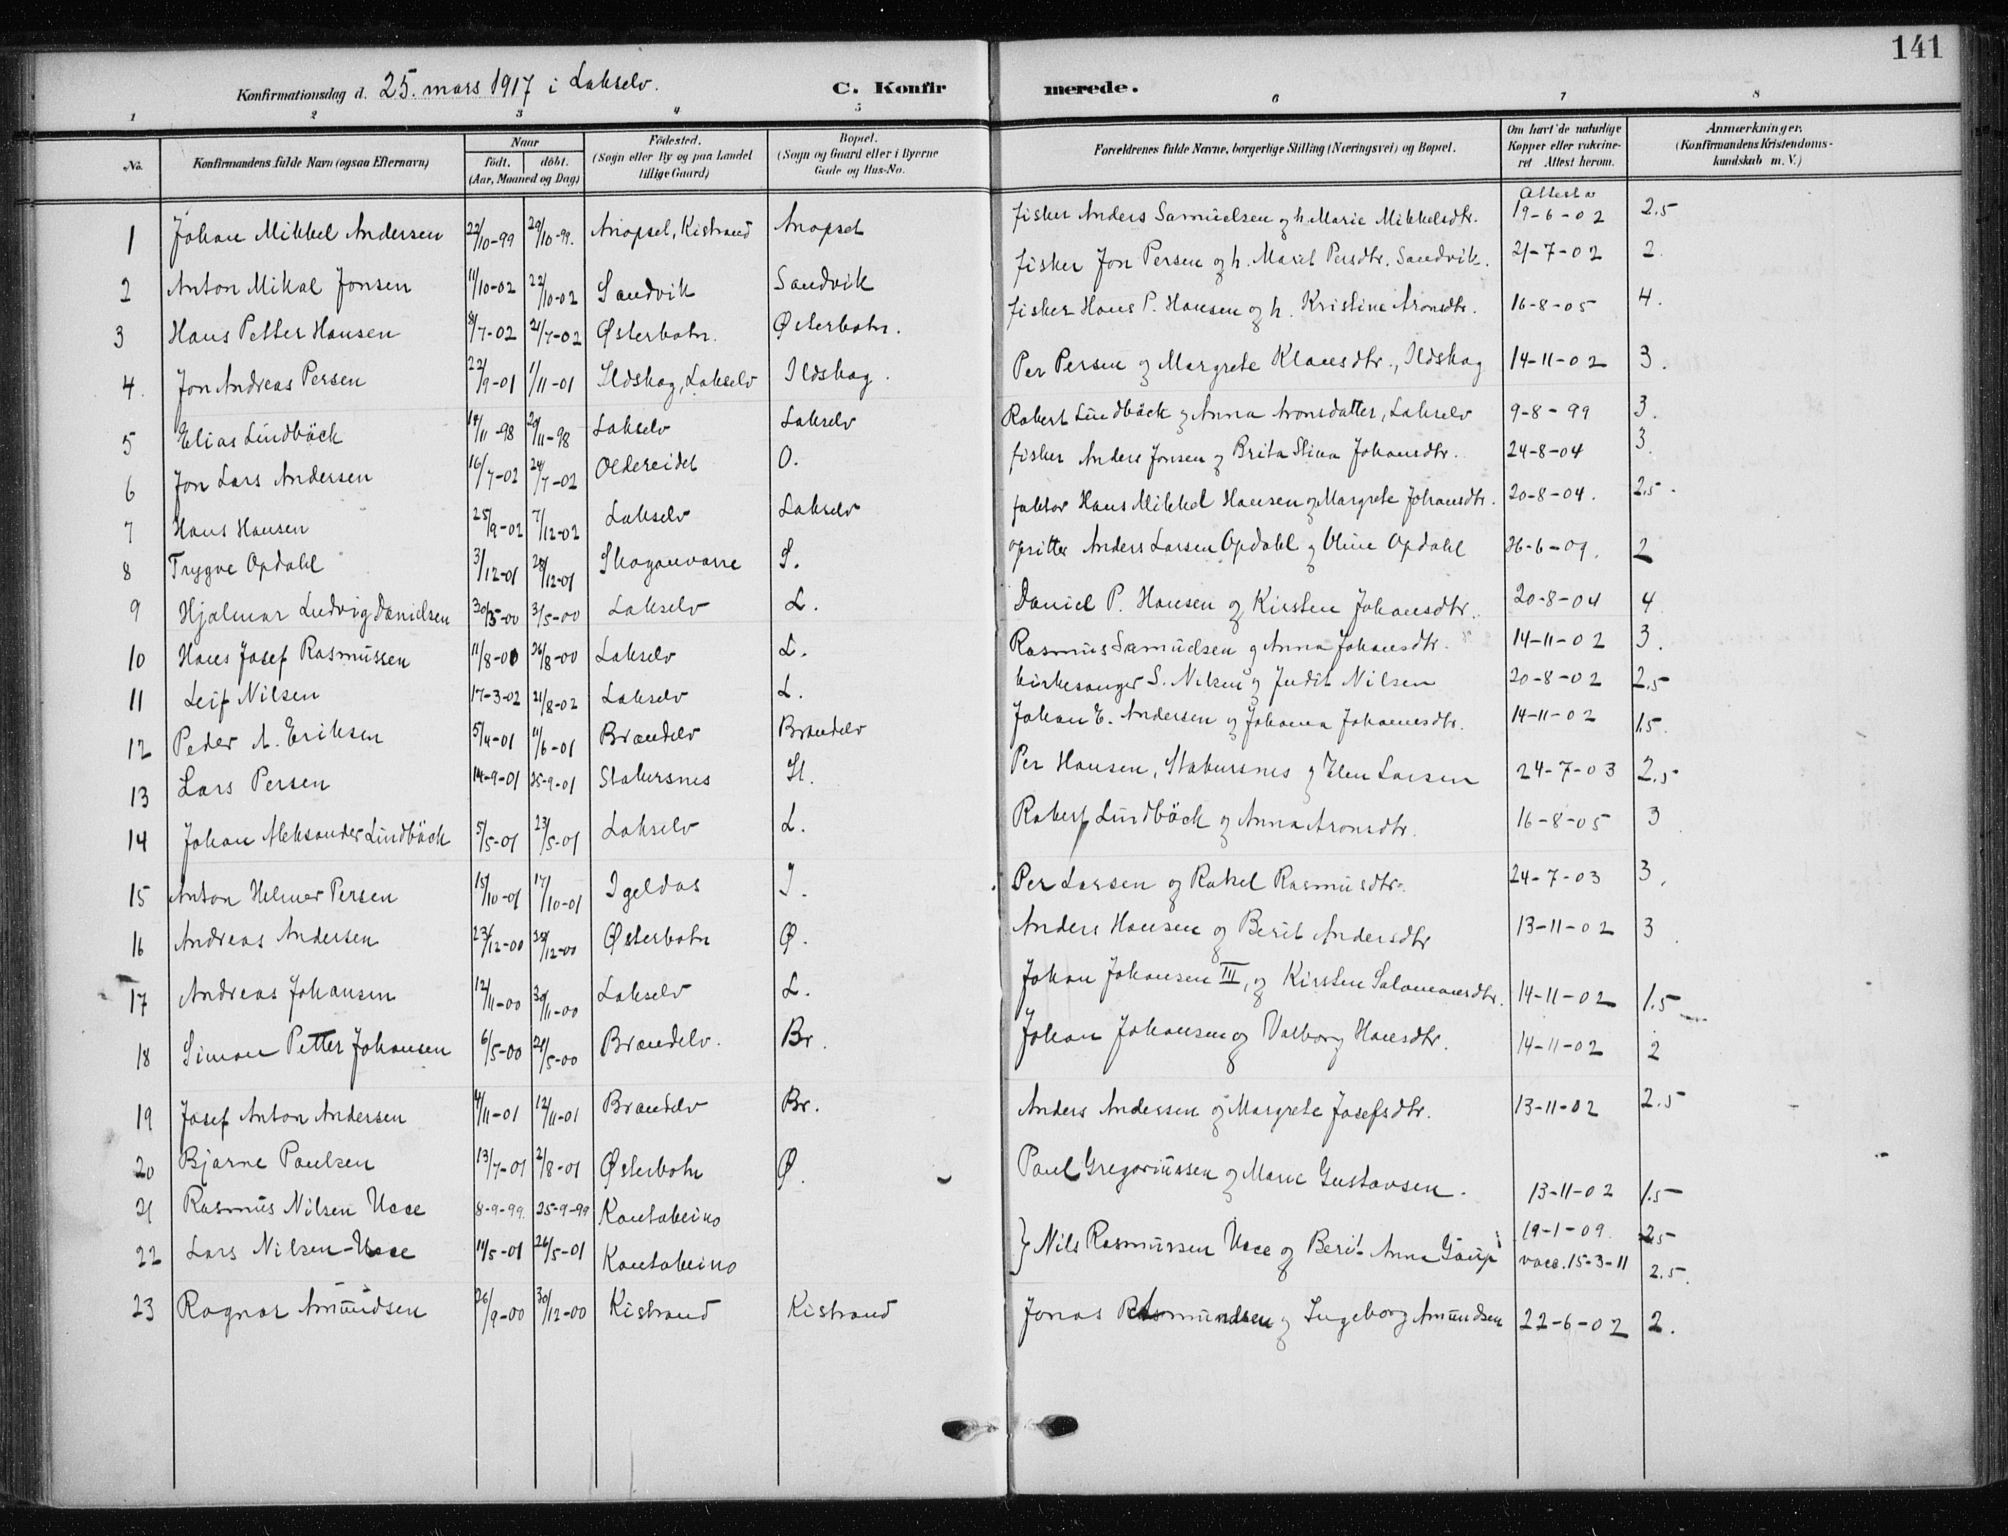 141
Konfirmationsdag d. 25. mars 1917 i Lakselv.
C. Konfirmerede.
1 2 3 4 5 6 7 8
No.
Konfirmandens fulde Navn (ogsaa Efternavn)
Naar
födt. döbt.
(Aar, Maaned og Dag)
Födested.
(Sogn eller By og paa Landet
tillige Gaard)
Bopæl.
(Sogn og Gaard eller i Byerne
Gade og Hus-No.
Forældrenes fulde Navne, borgerlige Stilling (Næringsvei) og Bopæl.
Om havt de naturlige
Kopper eller vakcine-
ret Attest herom.
Anmærkninger.
(Konfirmandens Kristendoms-
kundskab m. V.)
Attest av
1 Johan Mikkel Andersen 22/10-99 29/10-99. Anopset, Kistrand Anopset fisker Anders Samuelsen og h. Marie Mikkelsdtr. 19-6-02 2.5
2 Anton Mikal Jonsen 11/10-02 22/10-02 Sandvik Sandvik fisker Jon Persen og h. Marit Persdtr. Sandvik. 21-7-02 2.
3 Hans Petter Hansen 8/7-02 21/7-02 Østerbotn. Østerbotn. fisker Hans P. Hansen og h. Kristine Aronsdtr. 16-8-05 4.
4. Jon Andreas Persen 22/9-01 1/11-01 Ildskog, Lakselv Ildskog. Per Persen og Margrete Klausdtr., Ildskog 14-11-02 3.
5 Elias Lindbäck 14/11-98 20/11-98 Lakselv Lakselv Robert Lindbäck og Anna Aronsdatter, Lakselv 9-8-99 3.
6 Jon Lars Andersen 16/7-02 24/7-02 Oldereidet O. fisker Anders Jonsen og Brita Stina Johansdtr. 24-8-04 3.
7 Hans Hansen 25/9-02 7/12-02 Lakselv Lakselv faktor Hans Mikkel Hansen og Margrete Johansdtr. 20-8-04. 2.5.
8 Trygve Opdahl 3/12-01 28/12-01 Skoganvarre S. opsitter Anders Larsen Opdahl og Oline Opdahl 26-6-09. 2
9 Hjalmar Ludvig Danielsen 30/3-00 3/5-00 Lakselv L. Daniel P. Hansen og Kirsten Johansdtr. 20-8-04 4
10 Hans Josef Rasmussen 11/8-00 26/8-00 Lakselv L. Rasmus Samuelsen og Anna Johansdtr. 14-11-02 3.
11 Leif Nilsen 17-3-02 21/8-02 Lakselv L. kirkesanger S. Nilsen og Judit Nilsen 20-8-02 2.5
12 Peder A. Eriksen 5/4-01 11/6-01 Brændelv Brændelv Johan E. Andersen og Johanna Johannesdtr. 14-11-02 1.5.
13 Lars Persen 14-9-01 25-9-01 Stabursnes St. Per Hansen, Stabursnes og Elen Larsen 24-7-03 2.5
14 Johan Aleksander Lindbäck 5/5-01 23/5-01 Lakselv L. Robert Lindbäck og Anna Aronsdtr. 16-8-05 3
15 Anton Helmer Persen 15/10-01 17/10-01 Igeldas I. Per Larsen og Rakel Rasmusdtr. 24-7-03 3.
16 Andreas Andersen 23/12-00 25/12-00 Østerbotn Ø. Anders Hansen og Berit Andersdtr 13-11-02 3
17 Andreas Johansen 12/11-00 30/11-00 Lakselv L. Johan Johansen III, og Kirsten Salamonsdtr. 14-11-02 1.5
18 Simon Petter Johansen 6/5-00 24/5-00 Brændelv. Br. Johan Johansen og Valborg Hansdtr. 14-11-02 2
19 Josef Anton Andersen 4/11-01 12/11-01 Brændelv Br. Anders Andersen og Margrete Josefsdtr. 13-11-02 2.5
20 Bjarne Paulsen 13/7-01 2/8-01 Østerbotn Ø. Paul Gregoriussen og Marie Gustavsen. 13-11-02 1.5
21 Rasmus Nilsen Utse 8-9-99. 25-9-99 Kautokeino 19-1-09. 2.5
22 Lars Nilsen Utse 11/5-01 26/5-01 Kautokeino } Nils Rasmussen Utse og Berit Anna Gaup vacc. 15-3-11 2.5.
23 Ragnar Amundsen 26/9-00 30/12-00 Kistrand Kistrand Jonas Amundsen og Ingeborg Amundsen 22-6-02 2.